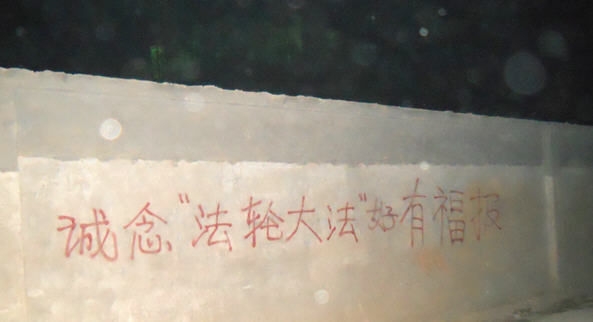 诚念"法轮大法"好有福报